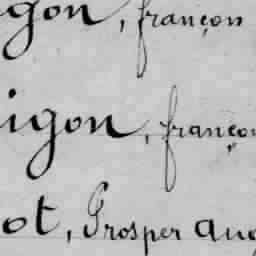 gon, françon
igon, françon
ot, Prosper Aug